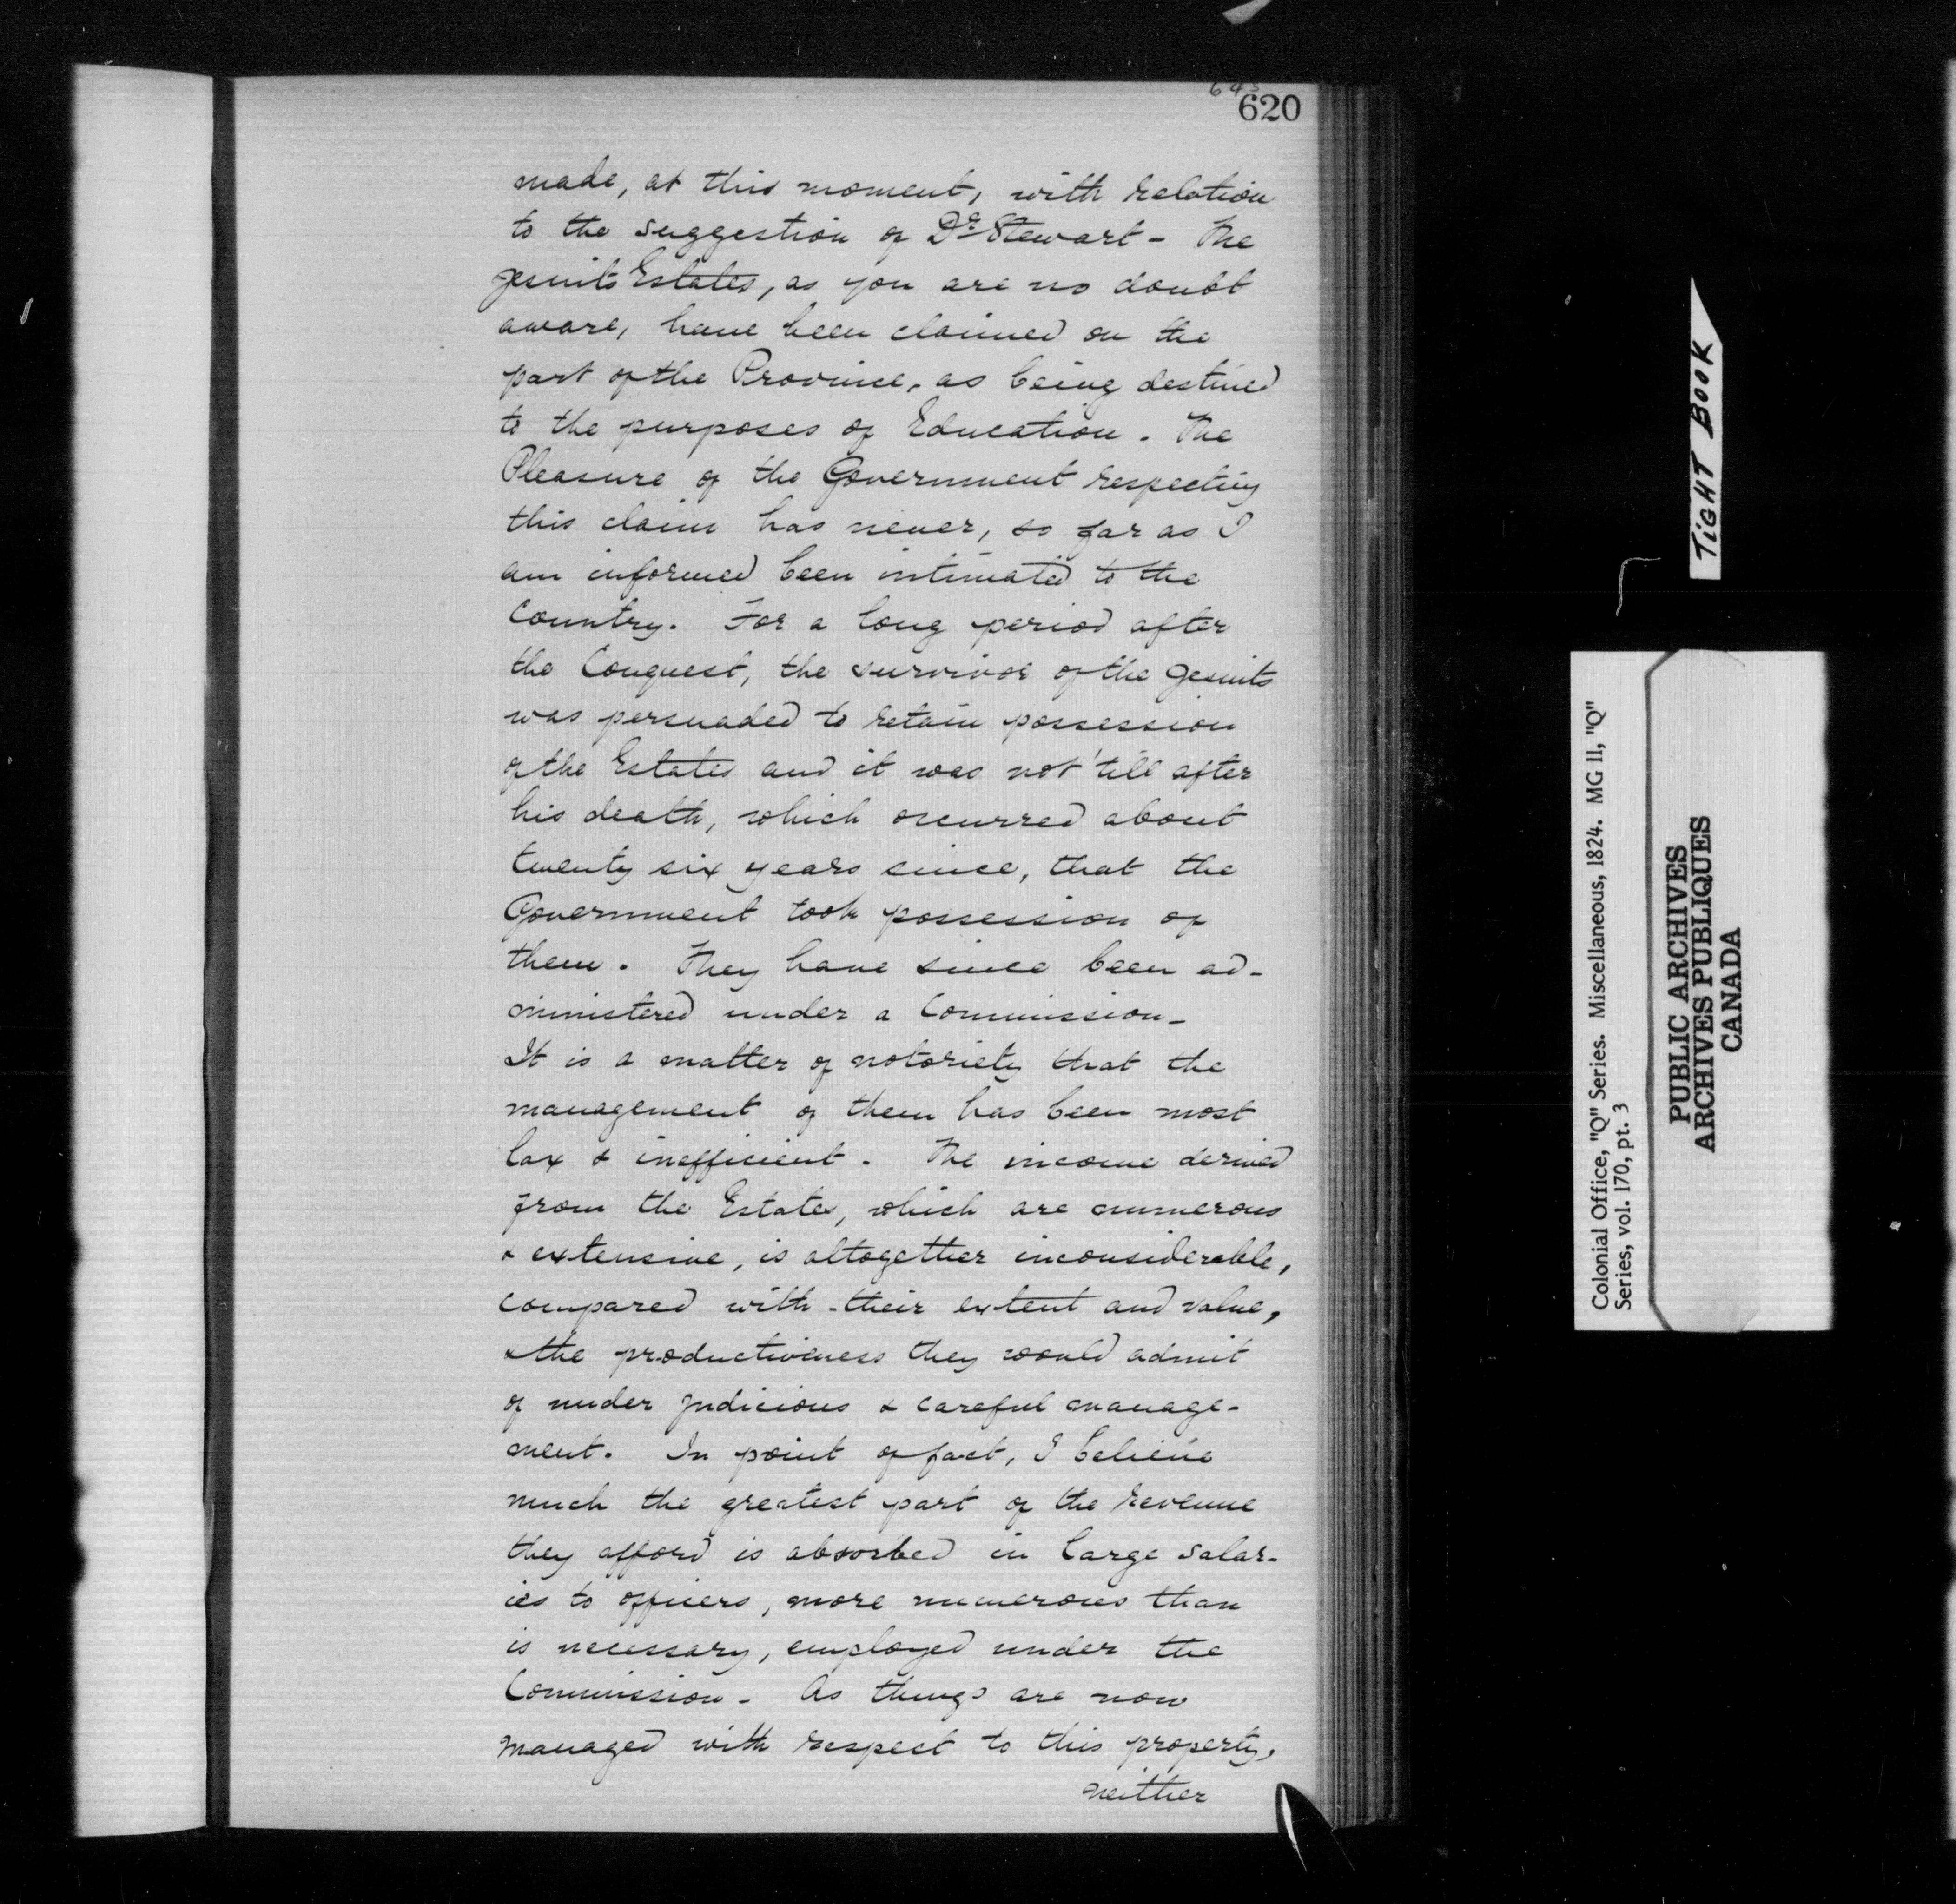 643
620
made, at this moment, with relation
to the suggestion of Dr. Stewart - The
Jesuits Estates, as you are no doubt
aware, have been claimed on the
part of the Province, as being destined
to the purposes of Education. The
Pleasure of the Government respecting
this claim has never, so far as I
am informed been intimated to the
Country. For a long period after
the Conquest, the survivor of the Jesuits
was persuaded to retain possession
of the Estates and it was not 'till after
his death, which occurred about
twenty six years since, that the
Government took possession of
them. They have since been ad-
ministered under a Commission-
It is a matter of notoriety that the
management of them has been most
lax & inefficient. The income derived
from the Estates, which are numerous
& extensive, is altogether inconsiderable,
compared with their extent and value,
& the productiveness they would admit
of under judicious & careful manage-
ment. In point of fact, I believe
much the greatest part of the revenue
they afford is absorbed in large salar-
ies to officers, more numerous than
is necessary, employed under the
Commission - As things are now
managed with respect to this property,
neither
TIGHT BOOK
Colonial Office, "Q" Series. Miscellaneous, 1824. MG 11, "Q"
Series, vol. 170, pt. 3
PUBLIC ARCHIVES
ARCHIVES PUBLIQUES
CANADA